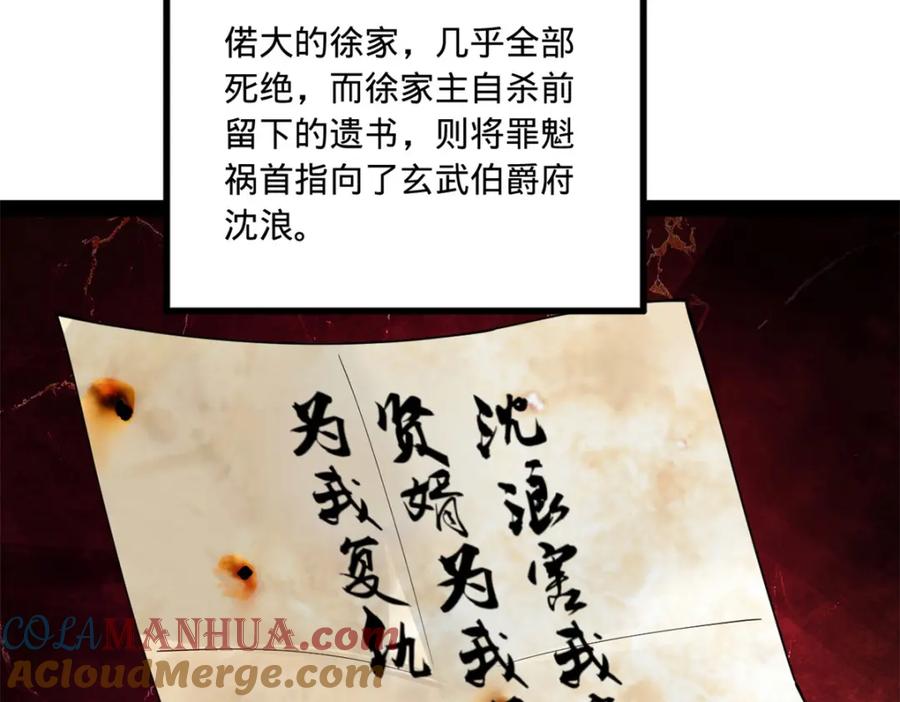 偌大的徐家，几乎全部
死绝，而徐家主自杀前
留下的遗书，则将罪魁
祸首指向了玄武伯爵府
沈浪。
沈浪害我
贤婿为我
为我复仇
COLAMANHUA.com
AcloudMerge.com